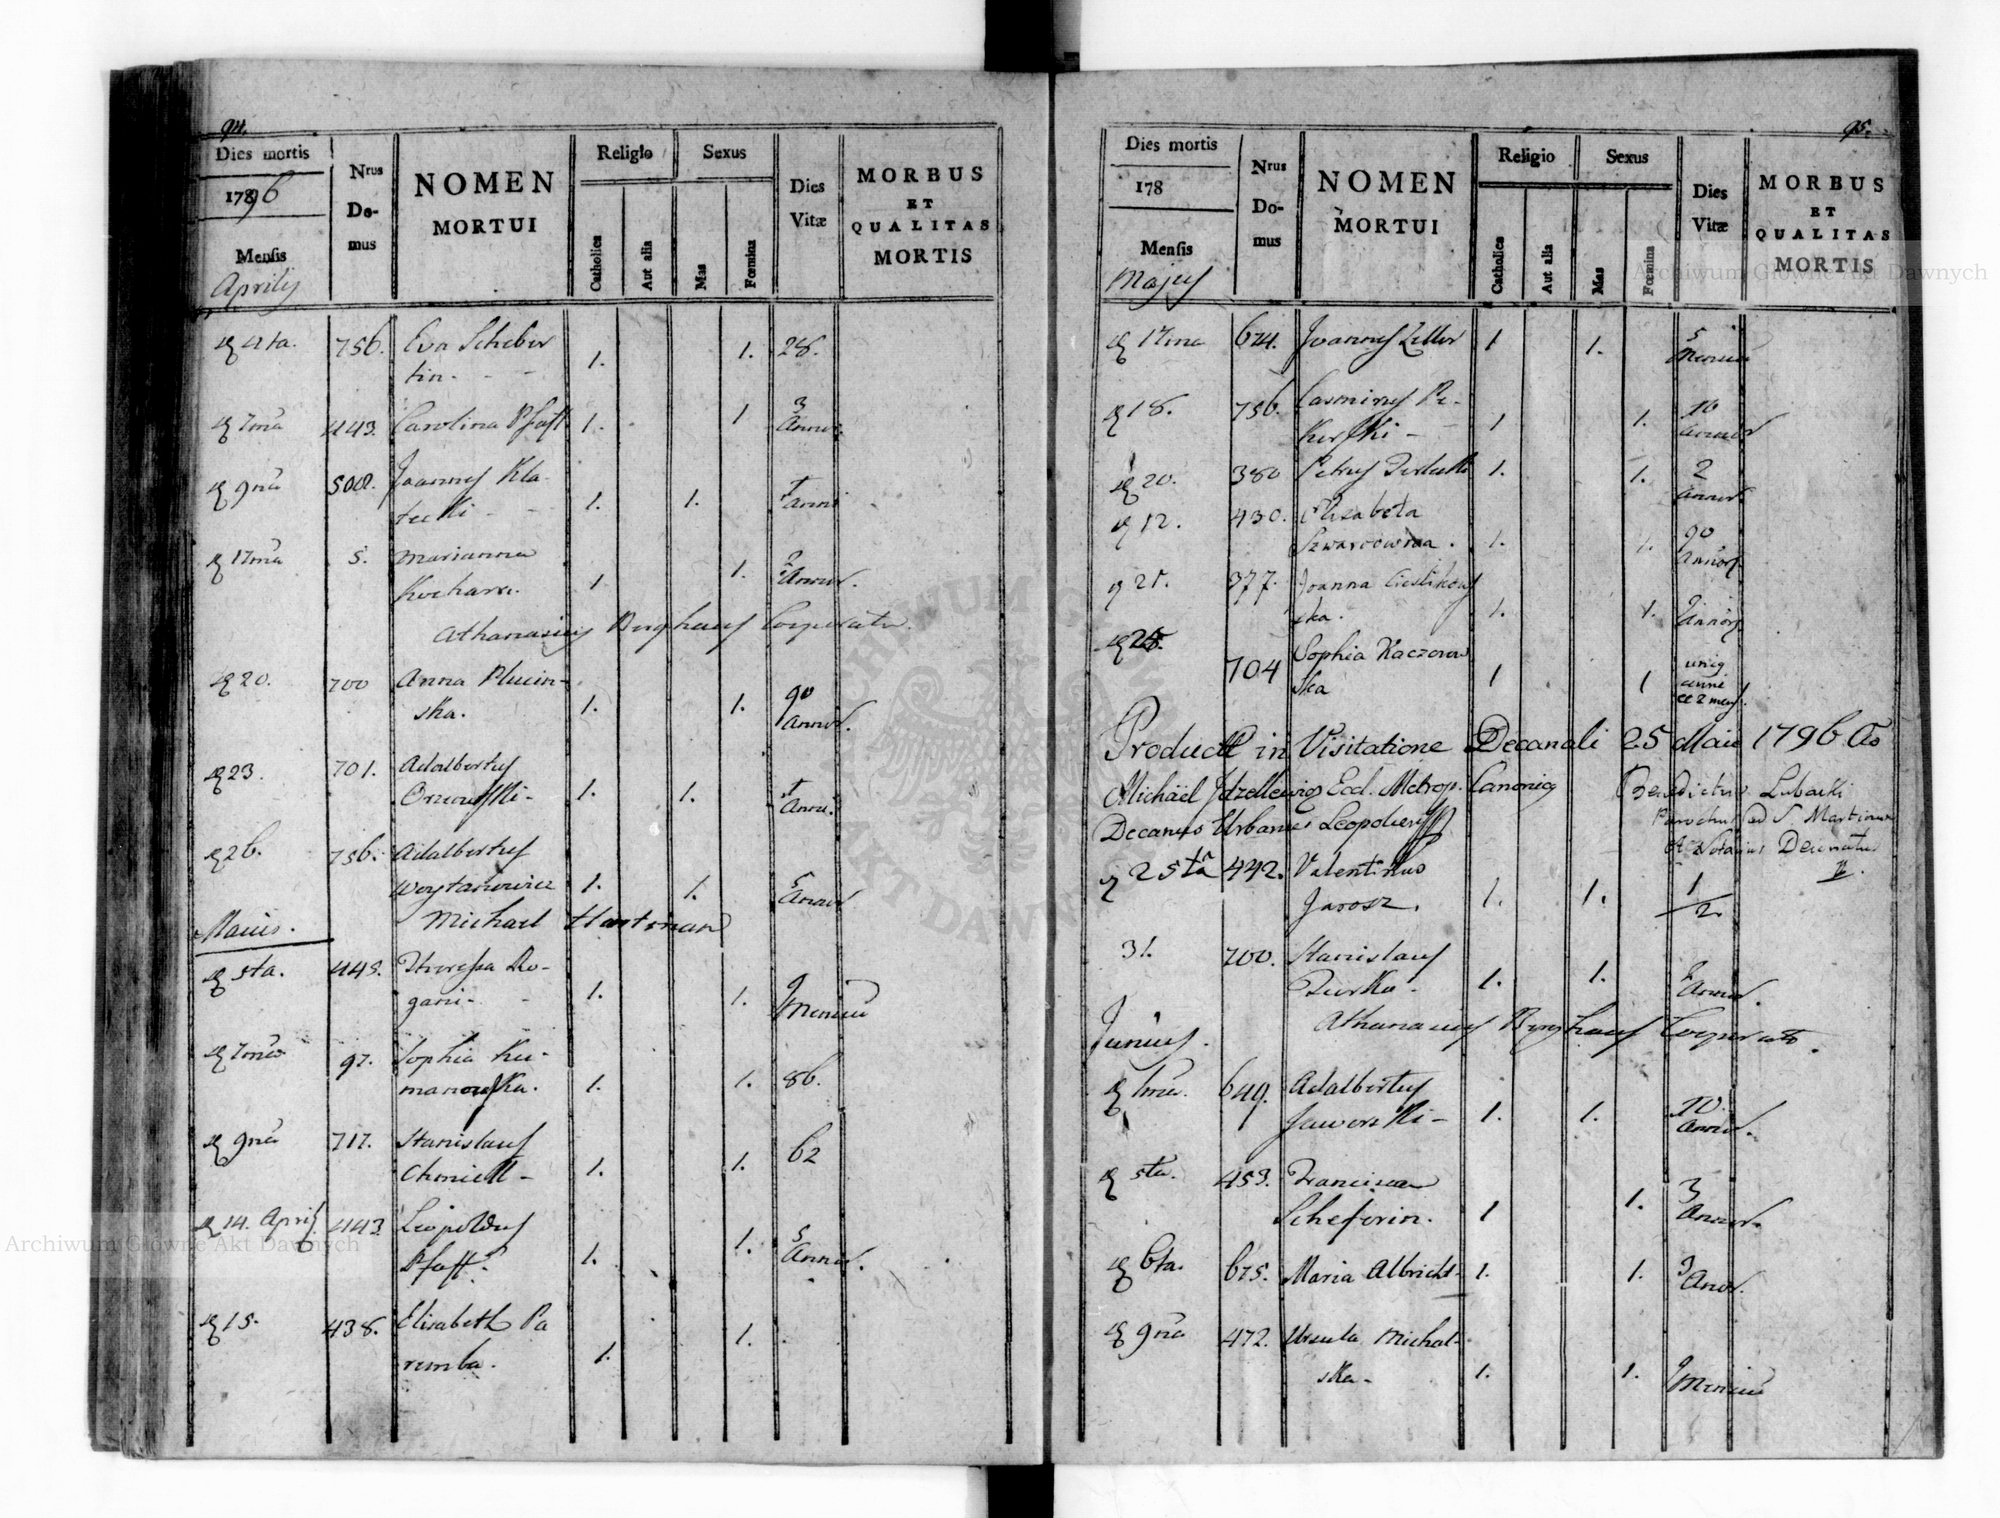 94.
Dies mortis
1796
Mensis
Aprilis
Nrus
Do-
mus
NOMEN
MORTUI
Religio
Catholica
Aut alia
Sexus
Mas
Fœmina
Dies
Vitæ
MORBUS
ET
QUALITAS
MORTIS
4ta. 756. Eva Scheber 28.
tin. - - 1. 1.
7ma 443. Carolina Pfaff 1. 1 3
Annor.
9na 502. Joannes Kla-
1. 1. 1 Anni
17ma 5. Marianna
1. 1. 2 Annor.
Athanasius Berghauf Cooperator
20. 700 Anna Plucin-
ska. 1. 1. 90
Annor.
23. 701. Adalbertus
1. 1. 1 Anni
26. 756. Adalbertus
Woytanowicz 1. 1. 5 Annor
Michael Hartman
Maius.
5ta. 445. Theressa Ro-
gani - - 1. 1. Mensium
7ma 97. Sophia Ku-
manowska. 1. 1. 86.
9na 717. Stanislaus
1. 1. 62
14. Aprilis 443 Leopoldus
Pfaff. 1. 1. 5
Annor.
15. 438. Elisabeth Pa
remba. 1. 1.
95.
Dies mortis
178
Mensis
Majus
Nrus
Do-
mus
NOMEN
MORTUI
Religio
Catholica
Aut alia
Sexus
Mas
Fœmina
Dies
Vitæ
MORBUS
ET
QUALITAS
MORTIS
17ma 674. Joannes Zeller 1 1. 5
Mensium
18. 756. Casmirus Pe-
kerski - 1 1. 16
Annor
20. 380 Petrus 1. 1. 2
Annor.
12. 430. Elisabeta
Szwarcowna. 1. 1. 90
Annor
21. 377. Joanna Cieslikows
ska. 1. 1. Annor
25.
704 Sophia Kaczorow
ska 1 1 unius
anni
et 2 mens.
Product in Visitatione Decanali 25 Maii 1796 Ao
Michäel Ecd. Metrop. Canonicus
Decanus Urbanus Leopoliensis
Benedictus Lubaski
Parochus ad S. Martinum
et Notarius Decanatus
25ta 442. Valentinus
Jarosz. 1. 1. 1/2
31. 700. Stanislaus
1. 1. Annor.
Athanasius Berghauf Cooperator.
Junius.
1ma. 649. Adalbertus
Jaworski - 1. 1. 10
Annor.
5ta. 453. Francisca
Scheferin. 1 1. 3
Annor.
6ta. 675. Maria Albricht - 1. 1. 3
Anor.
9na 472. Ursula Michal-
ska - 1. 1. Mensium
Archiwum Główne Akt Dawnych
Archiwum Główne Akt Dawnych
ARCHIWUM GŁÓWNE AKT DAWNYCH